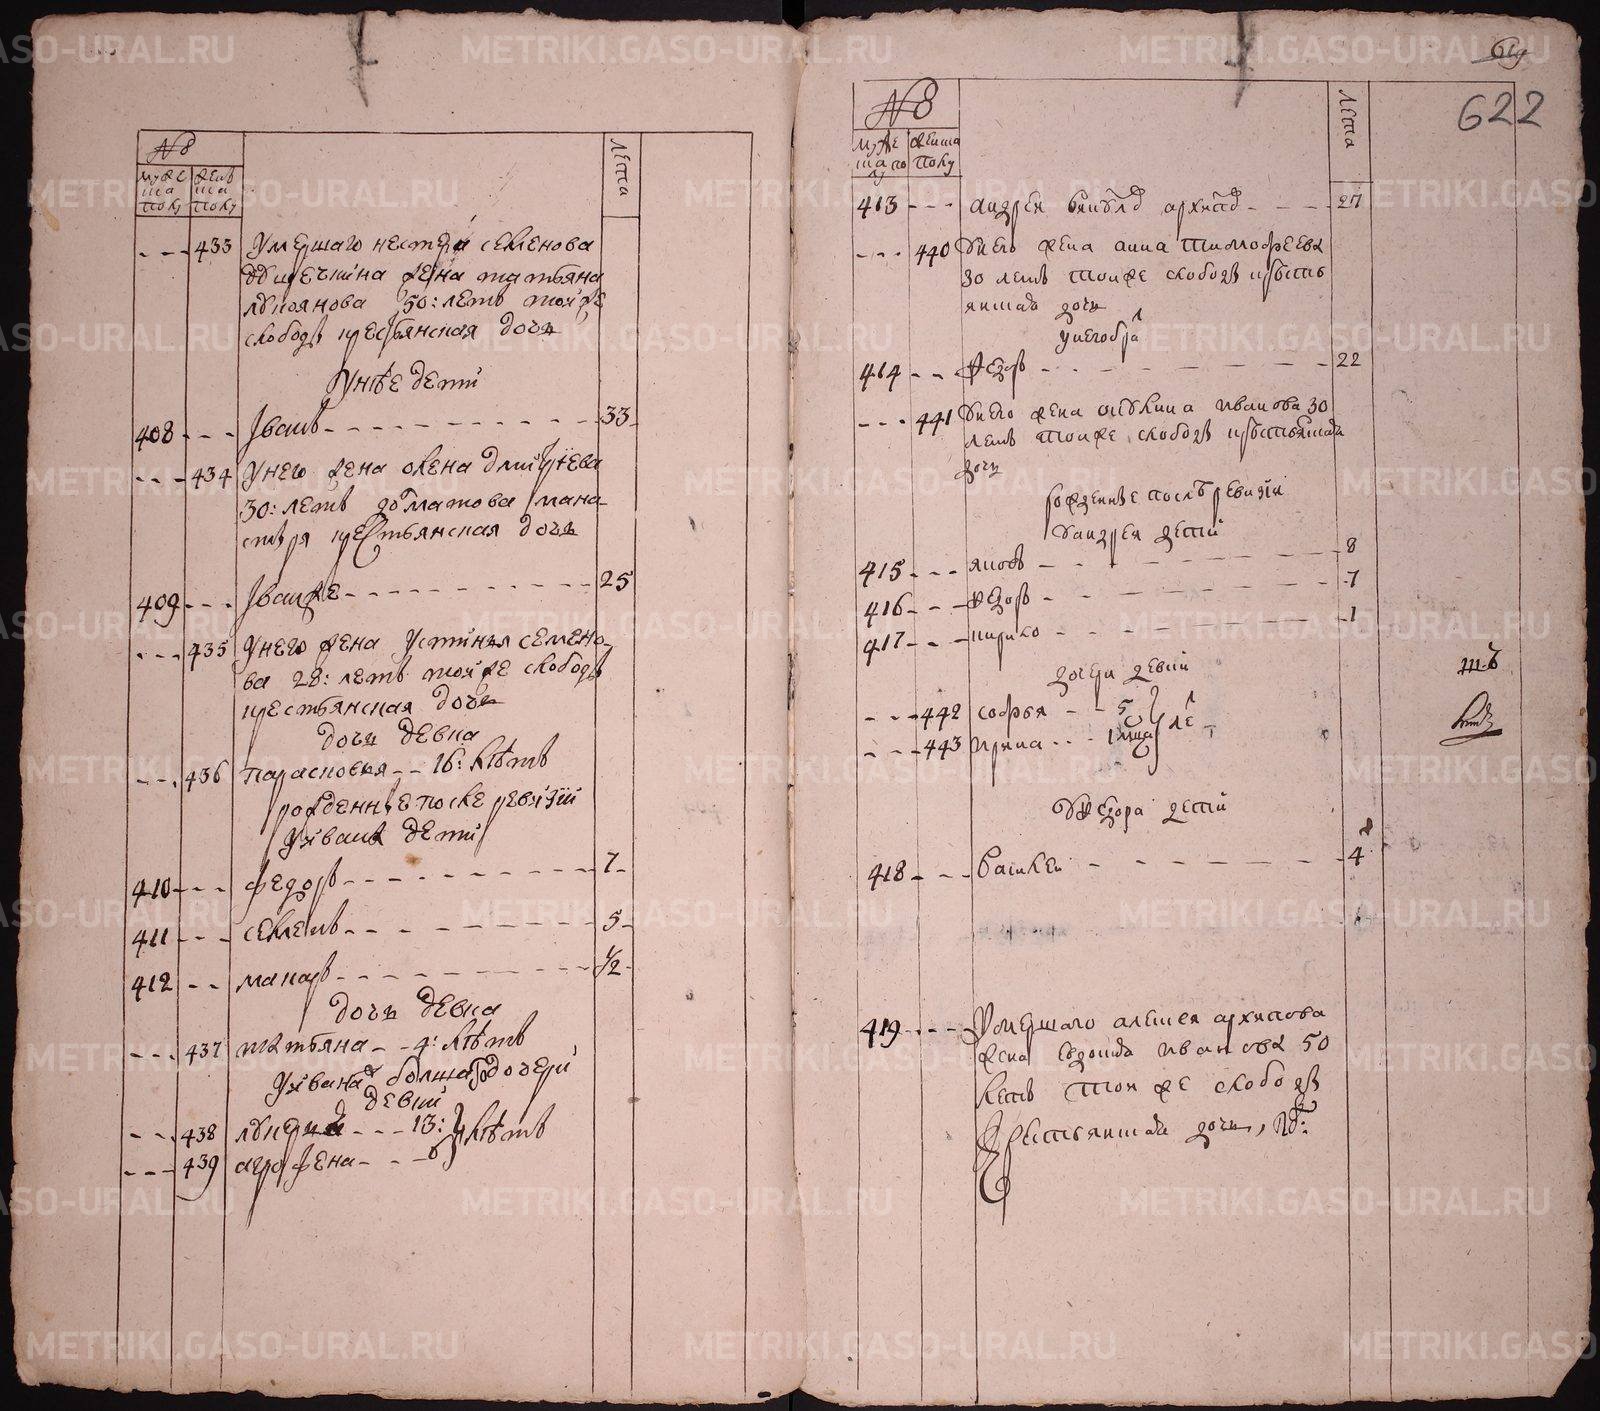 № 8
мужеска полу
женска полу
лѣта
433 Умершаго нестера семенова
жена татьяна
лукоянова 50: летъ тояже
слободы крестьянская дочь
У нѣе дети
408 Иванъ 33
434 Унего жена олена дмитриева
30: летъ долматова мана
стыря крестьянская дочь
409 Иванже 25
435 Унего жена Устинья семено
ва 28: летъ тояже слободы
крестьянская дочь
дочь девка
436 парасковья 16: лѣтъ
рожденные после ревизии
Уивана дети
410 федоръ 7
411 семенъ 5
412 макаръ 1/2
дочь девка
437 татьяна 4: лѣтъ
Уивана большаго дочери
девки
438 лукерья 13:
439 агрофена 6 лѣтъ
622
№ 8
мужеска полу
женска полу
лета
413 андрей архипов 27
440 Унего жена анна тимофеева
30 летъ тояже слободы крестья
янская дочь
Унего бра
414 Федоръ 22
441 Унего жена акулина иванова 30
летъ тояже слободы крестьянская
дочь
рожденные после ревизии
Уандрея детей
415 яковъ 8
416 Федоръ 7
417 кирило 1
дочери девки
442 софья 5
443 ирина 1 ле
Уфедора детей
418 василей 4
419 Умершаго алексея архипова
жена евдокия иванова 50
летъ тояже слободы
Крестьянская дочь